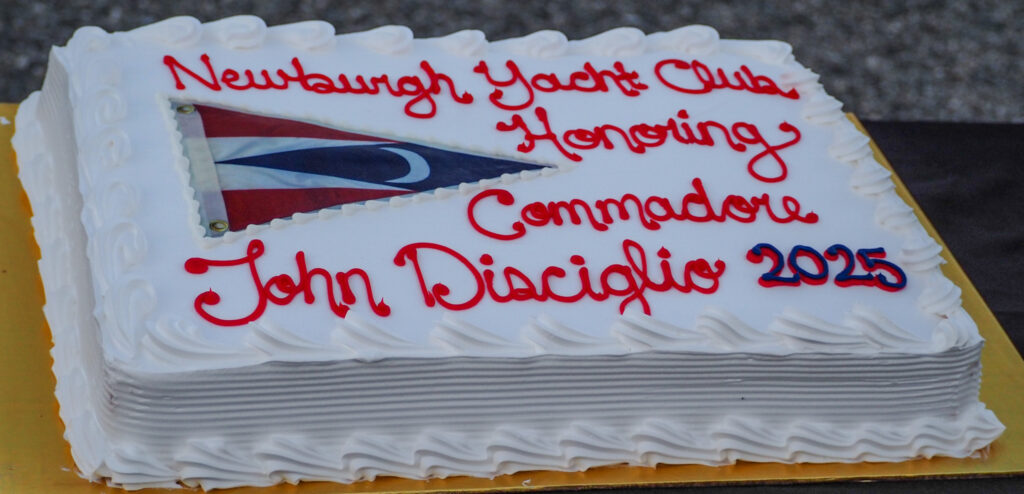 Newburgh Yacht Club
Honoring
Commadore
John Disciglio 2025